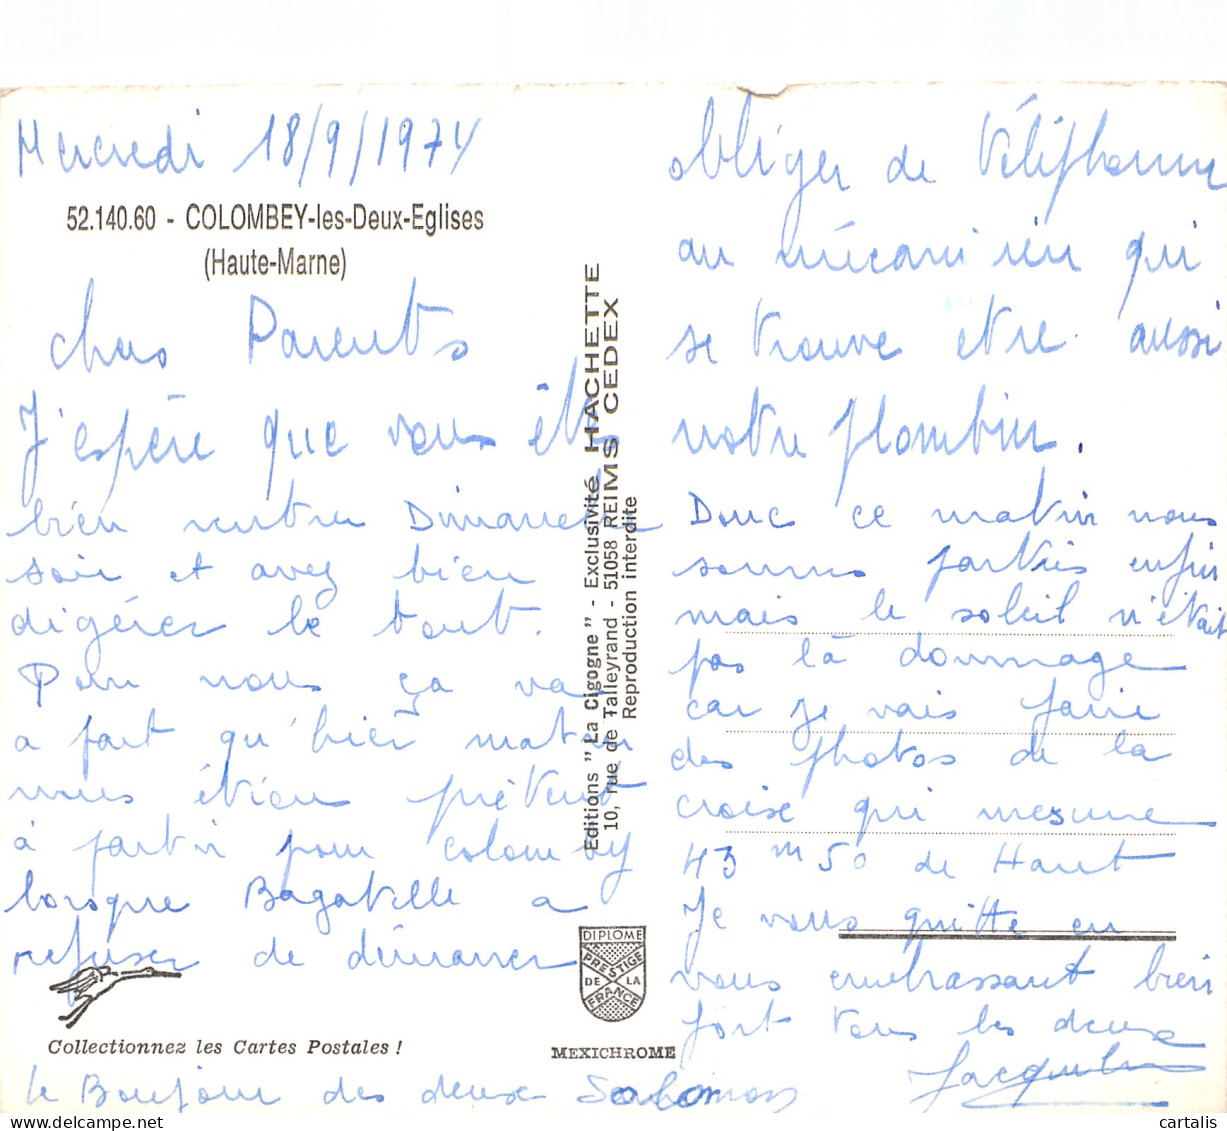 Mercredi 18/9/1974
52.140.60 - COLOMBEY-les-Deux-Eglises
(Haute-Marne)
chers Parents
J'espère que vous êtes
bien rentrer Dimanche
soir et avez bien
digérer le tout.
Pour nous ça va
a part qu'hier matin
nous étien prêtent
à partir pour colombey
lorsque Bagatelle a
refuser de démarrer
Collectionnez les Cartes Postales !
le Bonjour des deux Salomon
Editions " La Cigogne " - Exclusivité HACHETTE
10, rue de Talleyrand - 51058 REIMS CEDEX
Reproduction interdite
DIPLOME
PRESTIGE
DE LA
FRANCE
MEXICHROME
obliger de téléphonner
au mécanicien qui
se trouve etre aussi
notre plombier.
Donc ce matin nous
sommes parties enfin
mais le soleil n'était
pas là dommage
car je vais faire
des photos de la
croise qui mesure
43 m 50 de Haut
Je vous quitte en
vous embrassant bien
fort tous les deux
Jacqueline
cartalis